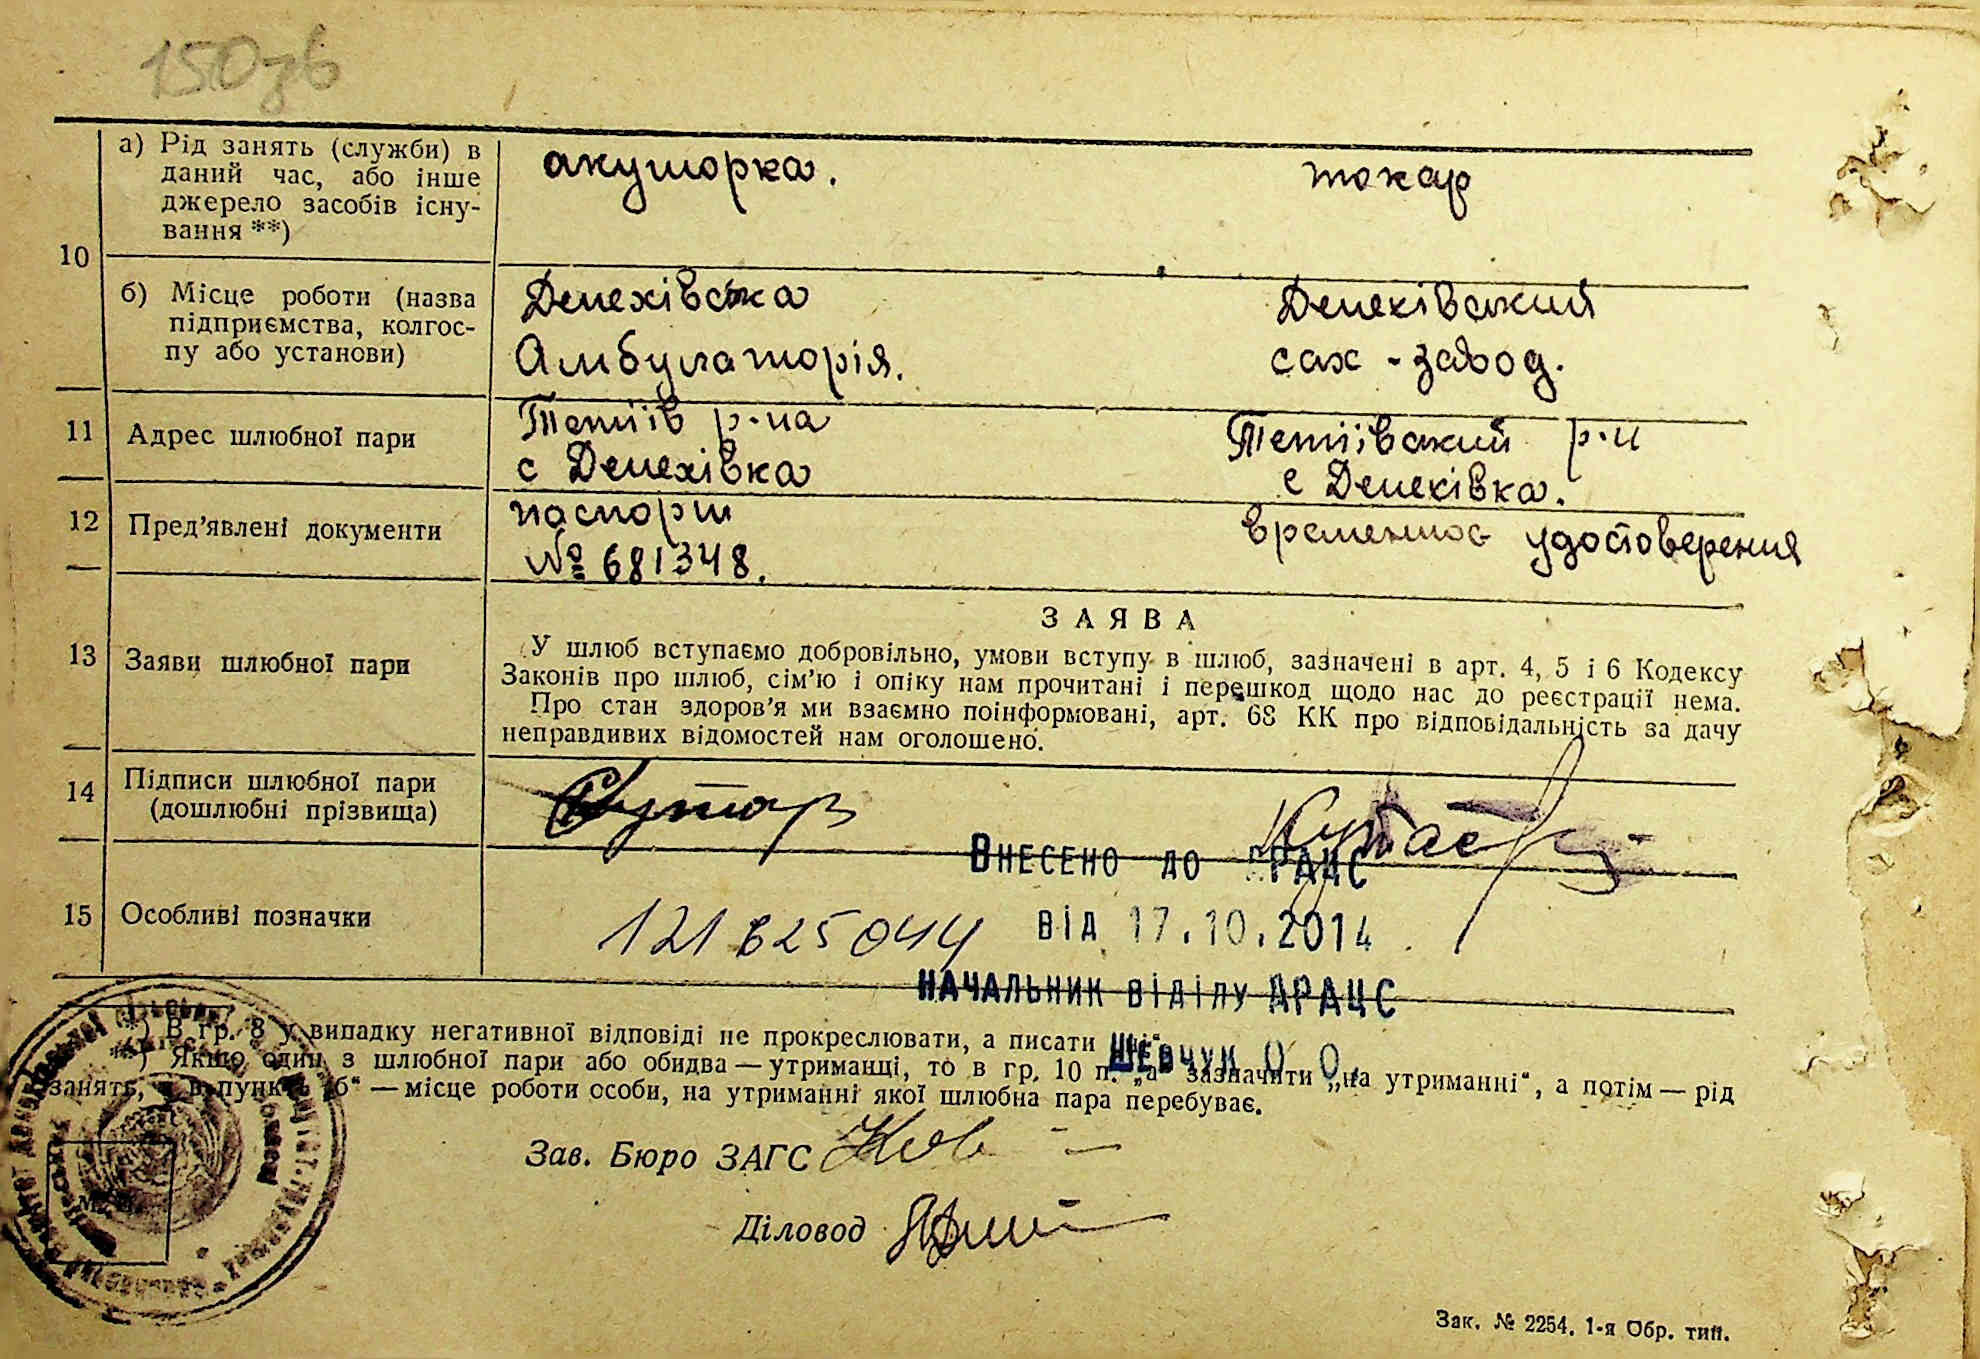 150зв
а) Рід занять (служби) в
даний час, або інше
джерело засобів існу-
вання **)
акушорка.
токар
10
б) Місце роботи (назва
підприємства, колгос-
пу або установи)
Денехівська
Амбулаторія.
Денехівський
сах - завод.
11
Адрес шлюбної пари
Тетіїв р-на
с Денехівка
Тетіївський р-н
с Денехівка.
12
Пред'явлені документи
паспорт
№ 681348.
временное удостоверения
13
Заяви шлюбної пари
ЗАЯВА
У шлюб вступаємо добровільно, умови вступу в шлюб, зазначені в арт. 4, 5 і 6 Кодексу
Законів про шлюб, сім'ю і опіку нам прочитані і перешкод щодо нас до реєстрації нема.
Про стан здоров'я ми взаємно поінформовані, арт. 68 КК про відповідальність за дачу
неправдивих відомостей нам оголошено.
14
Підписи шлюбної пари
(дошлюбні прізвища)
15
Особливі позначки
Внесено до ДРАЦС
від 17.10.2014
НАЧАЛЬНИК ВІДІЛУ ДРАЦС
ШЕВЧУК О. О.
*) В гр. 8 у випадку негативної відповіді не прокреслювати, а писати „ні“.
**) Якщо один з шлюбної пари або обидва — утриманці, то в гр. 10 п. „а“ зазначити „на утриманні“, а потім — рід
занять, а в пункті „б“ — місце роботи особи, на утриманні якої шлюбна пара перебуває.
Зав. Бюро ЗАГС
Діловод
Зак. № 2254. 1-я Обр. тип.